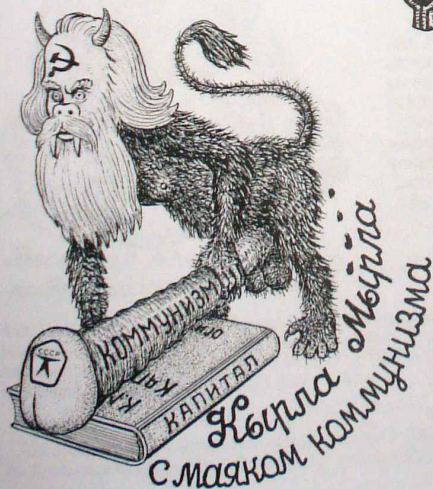 СССР
КОММУНИЗМ
КАПИТАЛ
Кырла Мырла...
с маяком коммунизма